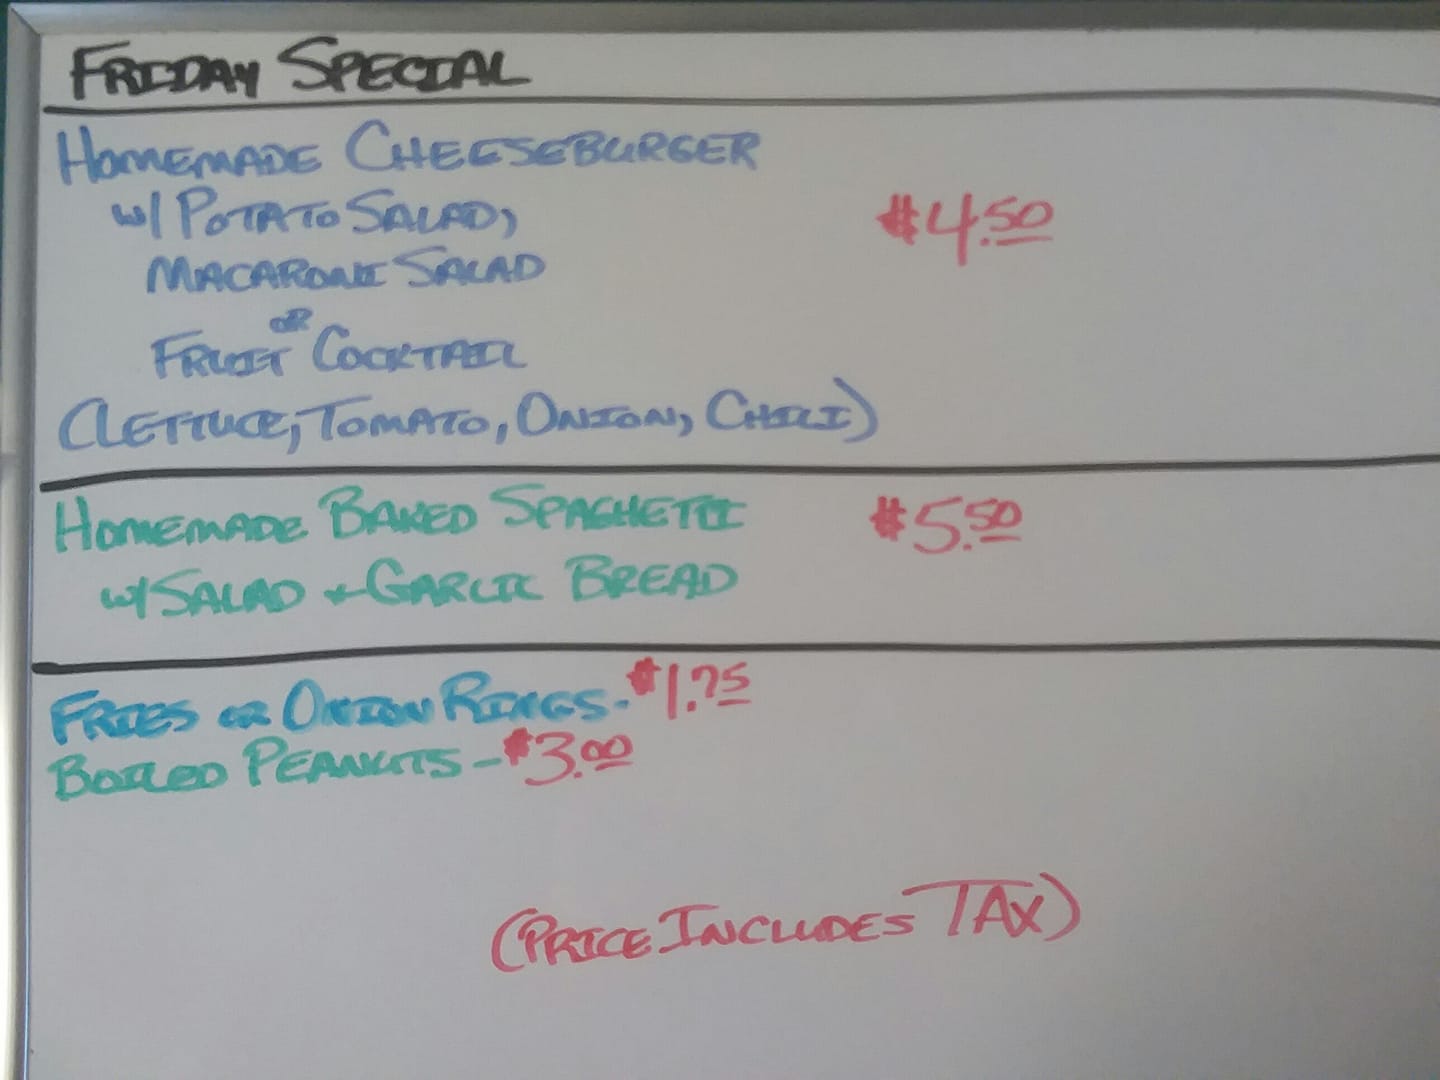 FRIDAY SPECIAL
HOMEMADE CHEESEBURGER
W/ POTATO SALAD,
$4.50
MACARONI SALAD
OR
FRUIT COCKTAIL
(LETTUCE, TOMATO, ONION, CHILI)
HOMEMADE BAKED SPAGHETTI $5.50
W/ SALAD + GARLIC BREAD
FRIES OR ONION RINGS - $1.75
BOILED PEANUTS - $3.00
(PRICE INCLUDES TAX)